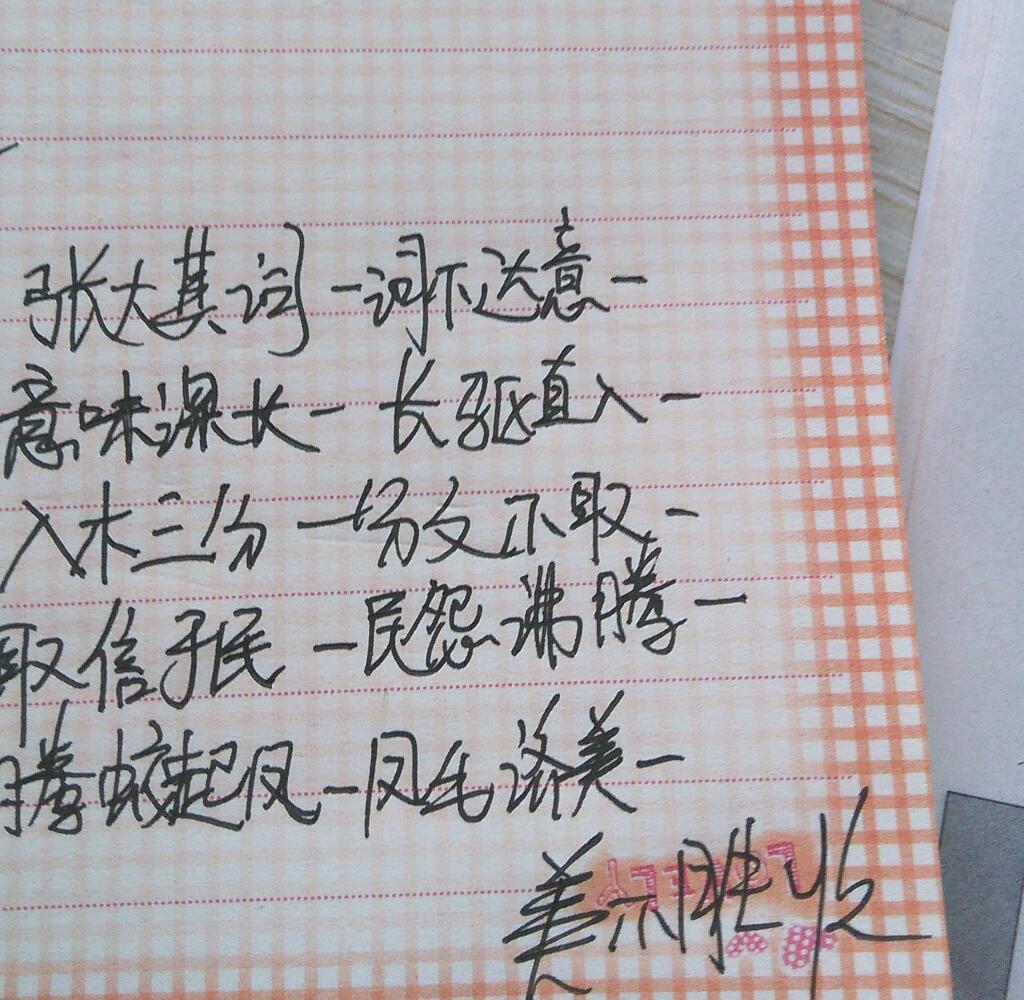 张大其词—词不达意—
意味深长—长驱直入—
入木三分—分文不取—
取信于民—民怨沸腾—
腾蛟起凤—凤毛济美—
美不胜收